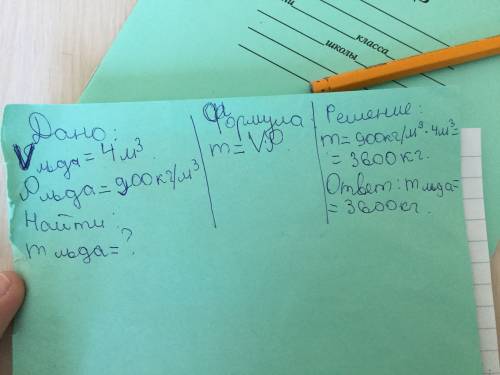 класса
школы
Дано:
Vльда = 4 м³
ρльда = 900 кг/м³
Найти:
m льда = ?
Формула
m = Vρ
Решение:
m = 900 кг/м³ · 4 м³ =
= 3600 кг.
Ответ: m льда =
= 3600 кг.